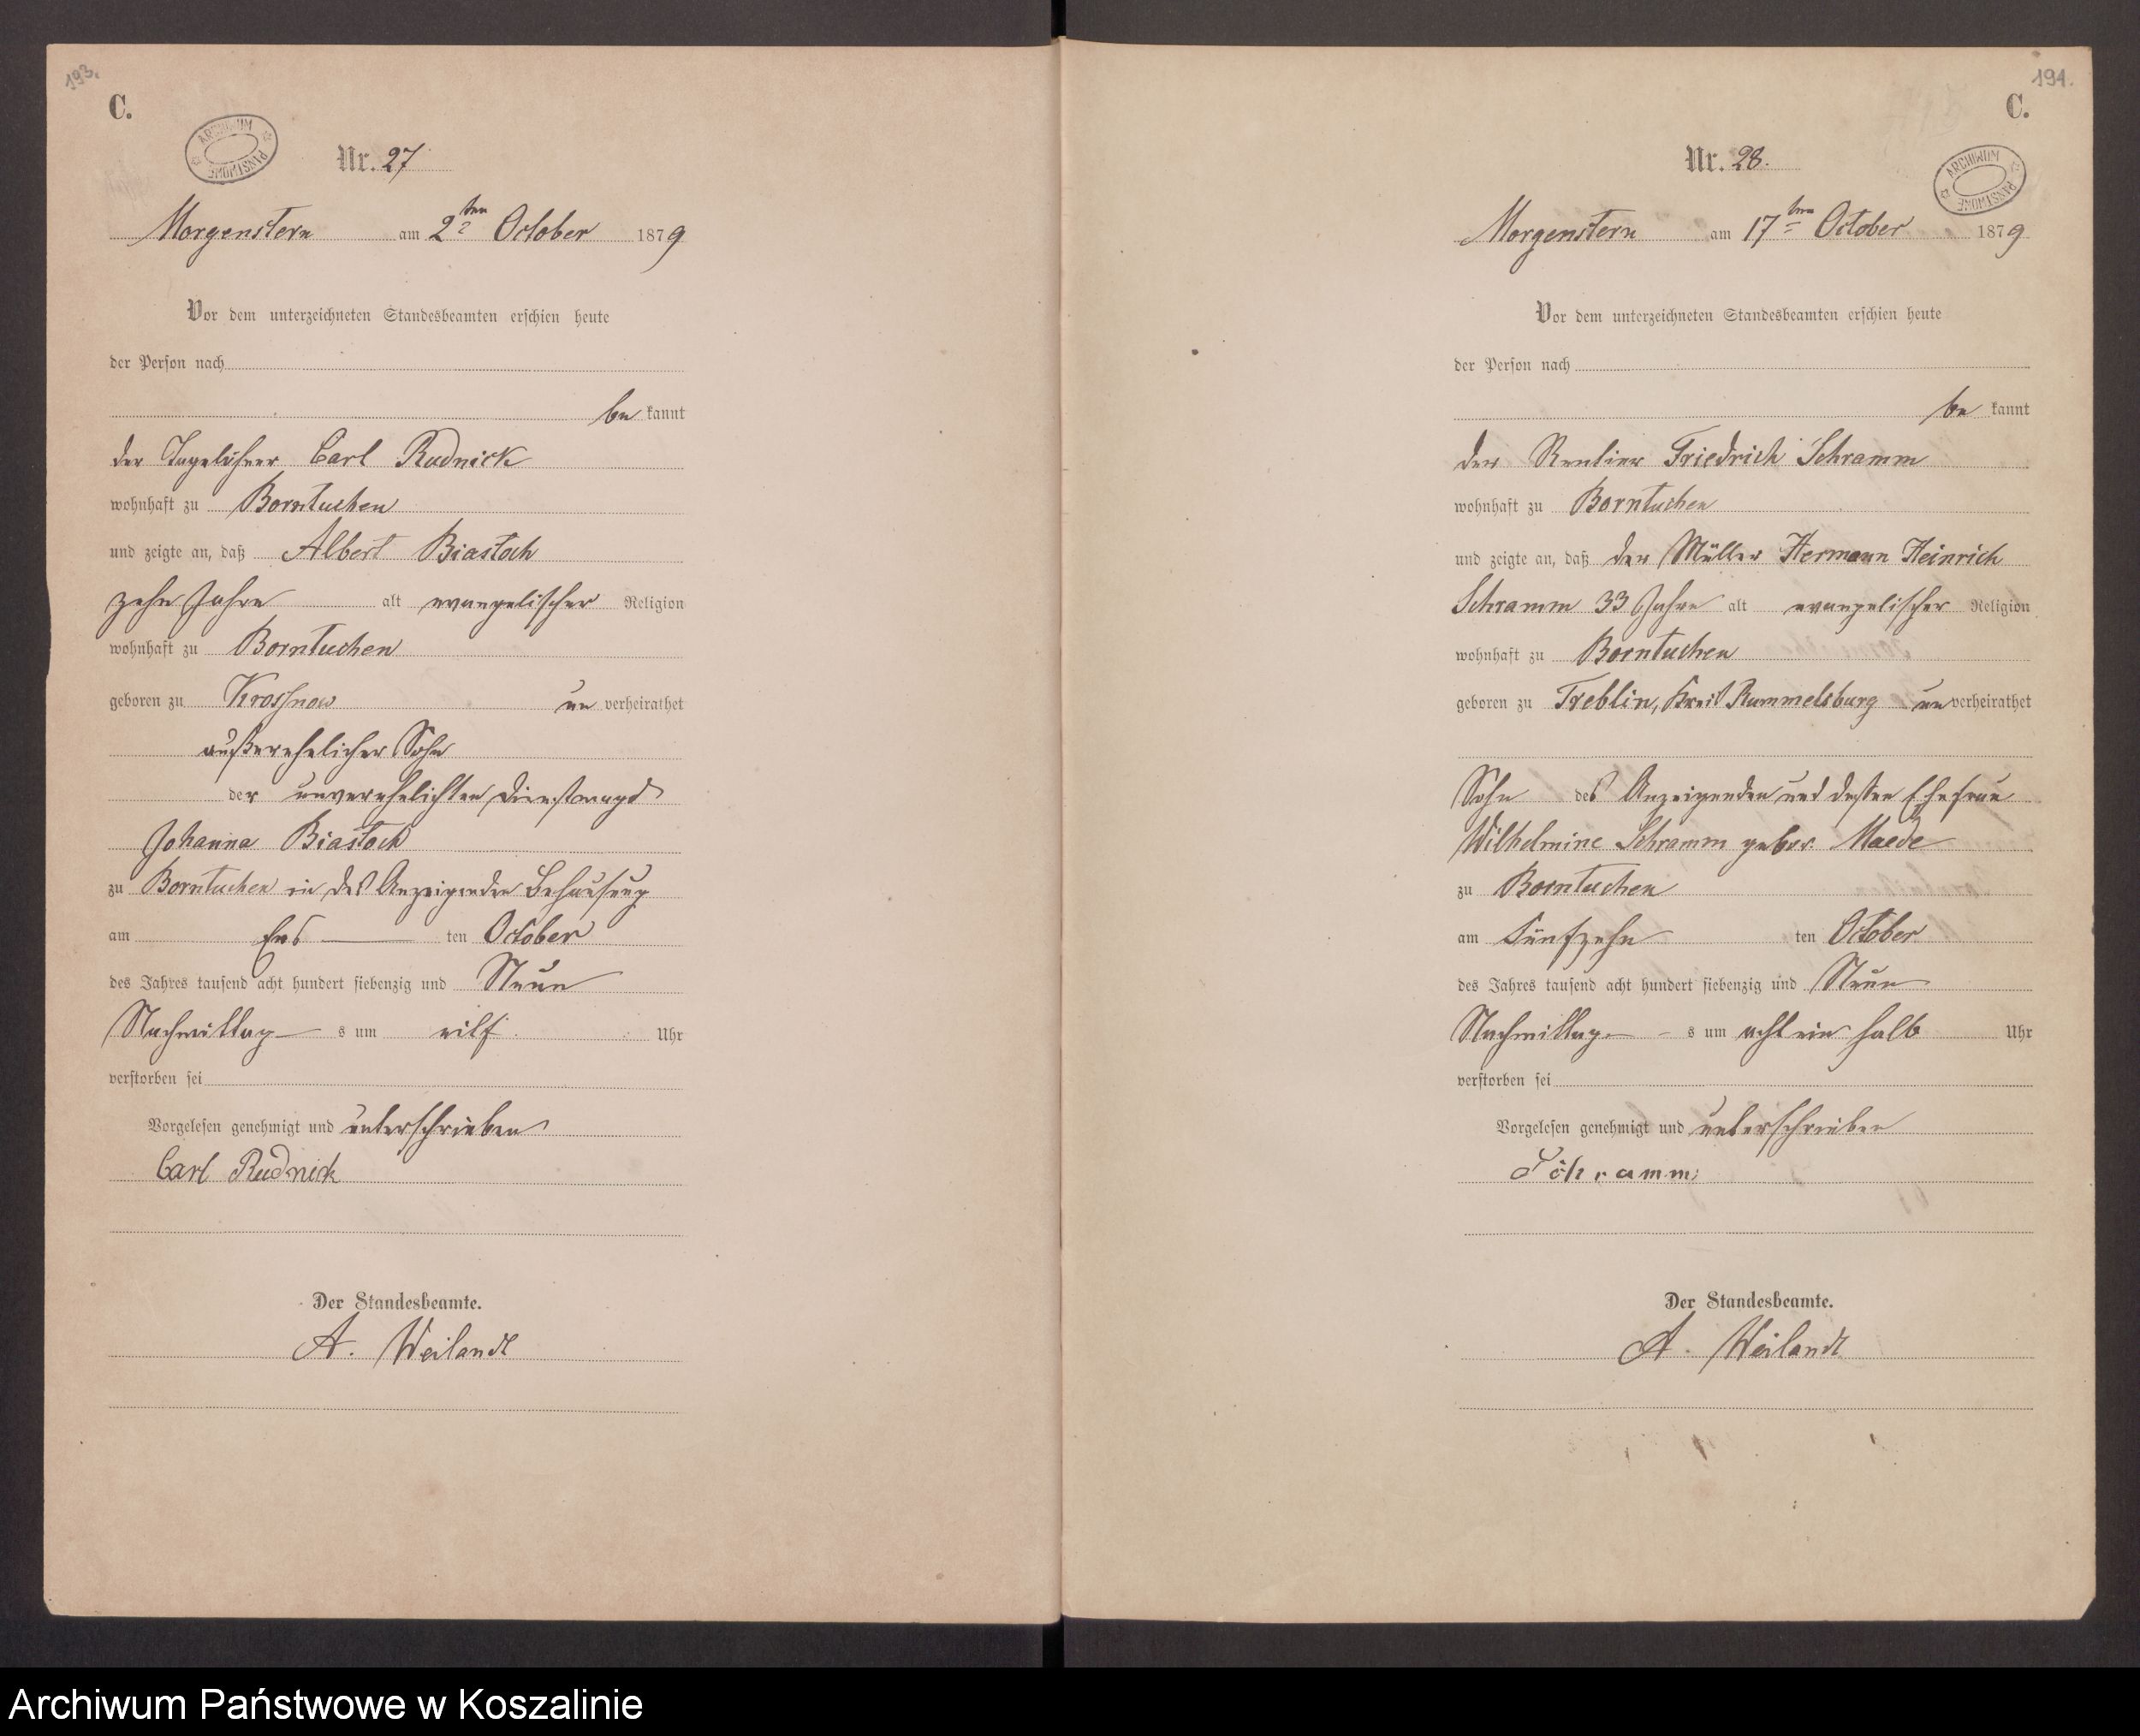 193.
C.
ARCHIWUM PAŃSTWOWE
Nr. 27
Morgenstern am 2ten October 1879
Vor dem unterzeichneten Standesbeamten erschien heute
der Person nach
be kannt
der Tagelöhner Carl Rudnick
wohnhaft zu Borntuchen
und zeigte an, daß Albert Biastoch
zehn Jahre alt evangelischer Religion
wohnhaft zu Borntuchen
geboren zu Krossnow un verheirathet
außerehelicher Sohn
der unverehelichten Dienstmagd
Johanna Biastoch
zu Borntuchen in des Anzeigenden Behausung
am Ers ten October
des Jahres tausend acht hundert siebenzig und Neun
Nachmittag s um eilf Uhr
verstorben sei
Vorgelesen genehmigt und unterschrieben
Carl Rudnick
Der Standesbeamte.
A. Weilandt
194.
C.
ARCHIWUM PAŃSTWOWE
Nr. 28.
Morgenstern am 17ten October 1879
Vor dem unterzeichneten Standesbeamten erschien heute
der Person nach
be kannt
der Rentier Friedrich Schramm
wohnhaft zu Borntuchen
und zeigte an, daß der Müller Hermann Heinrich
Schramm 33 Jahre alt evangelischer Religion
wohnhaft zu Borntuchen
geboren zu Treblin, Kreis Rummelsburg un verheirathet
Sohn des Anzeigenden und dessen Ehefrau
Wilhelmine Schramm gebor. Maede
zu Borntuchen
am Fünfzehn ten October
des Jahres tausend acht hundert siebenzig und Neun
Nachmittag s um acht ein halb Uhr
verstorben sei
Vorgelesen genehmigt und unterschrieben
Schramm
Der Standesbeamte.
A. Weilandt
Archiwum Państwowe w Koszalinie